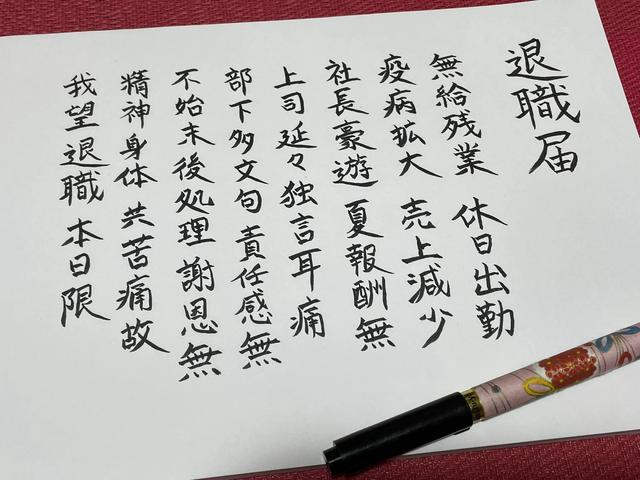 退職届
無給残業 休日出勤
疫病拡大 売上減少
社長豪遊 夏報酬無
上司延々独言耳痛
部下多文句責任感無
不始末後処理 謝恩無
精神身体 共苦痛故
我望退職 本日限